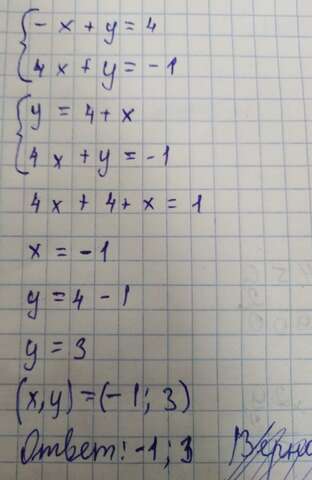 - x + y = 4
4x + y = -1
y = 4 + x
4x + y = -1
4x + 4 + x = 1
x = -1
y = 4 - 1
y = 3
(x, y) = (-1; 3)
Ответ: -1; 3